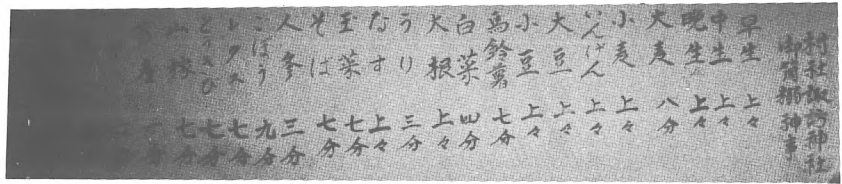 村社諏訪神社
御筒粥神事
早生 上々
中生 上々
晩生 上々
大麦 八分
小麦 上々
いんげん 上々
大豆 上々
小豆 上々
馬鈴薯 七分
白菜 四分
大根 上々
うり 三分
なす 上々
玉菜 七分
そば 七分
人参 三分
ごぼう 九分
レタス 七分
とうきび 七分
七分